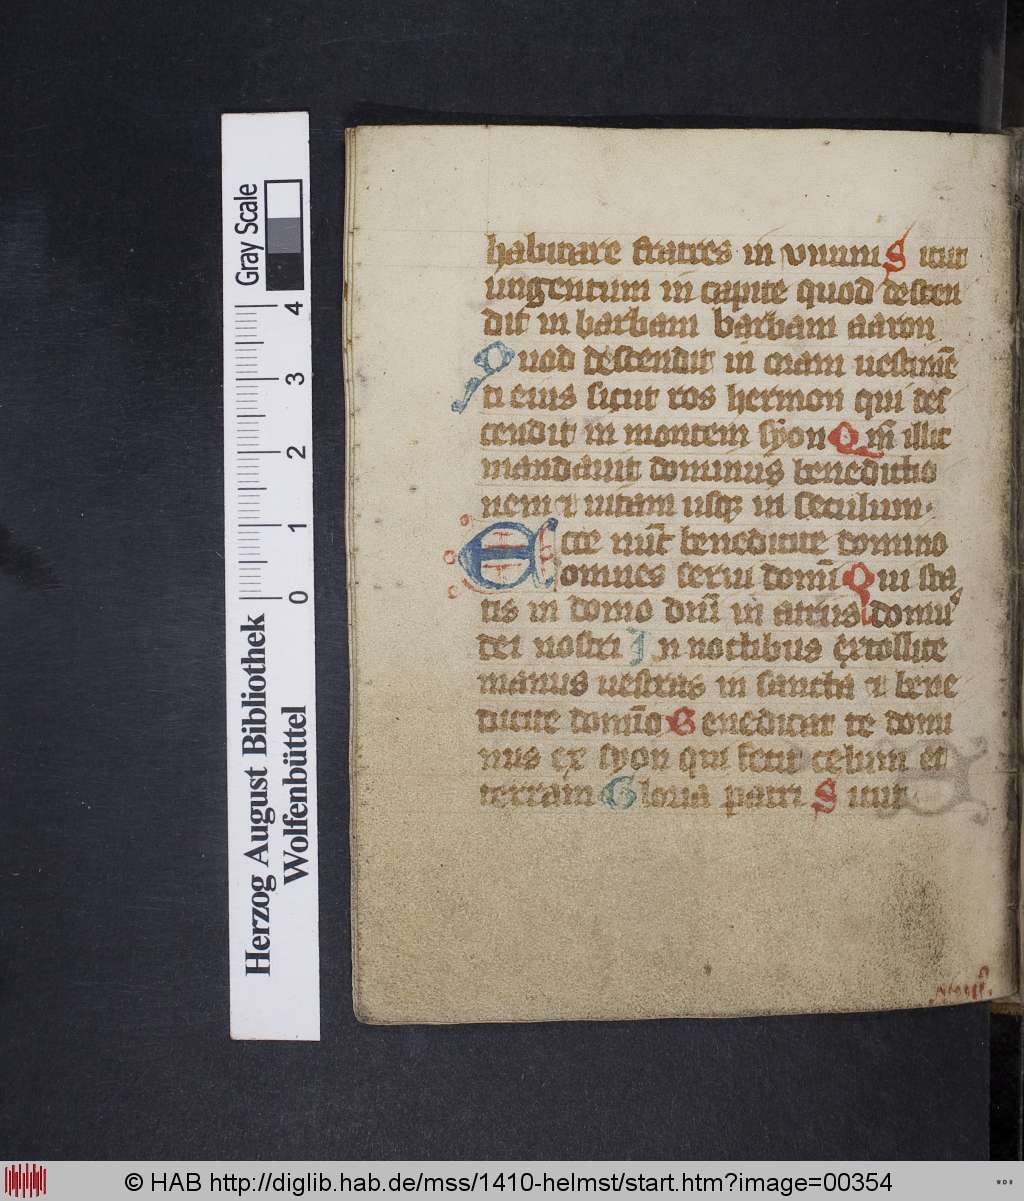 habitare fratres in vnum Sicut
ungentum in capite quod descen
dit in barbam barbam aaron
Quod descendit in oram uestimē
ti eius sicut ros hermon qui des
cendit in montem syon Qm̄ illic
mandauit dominus benedictio
nem et uitam usqꝫ in seculum
Ecce nūc benedicite domino
omnes serui domī Qui sta
tis in domo dnī in atriis domus
dei nostri In noctibus extollite
manus uestras in sancta et bene
dicite domīo Benedicat te domi
nus ex syon qui fecit celum et
terram Gloria patri Sicut
Gray Scale
4
3
2
1
0
Herzog August Bibliothek
Wolfenbüttel
© HAB http://diglib.hab.de/mss/1410-helmst/start.htm?image=00354